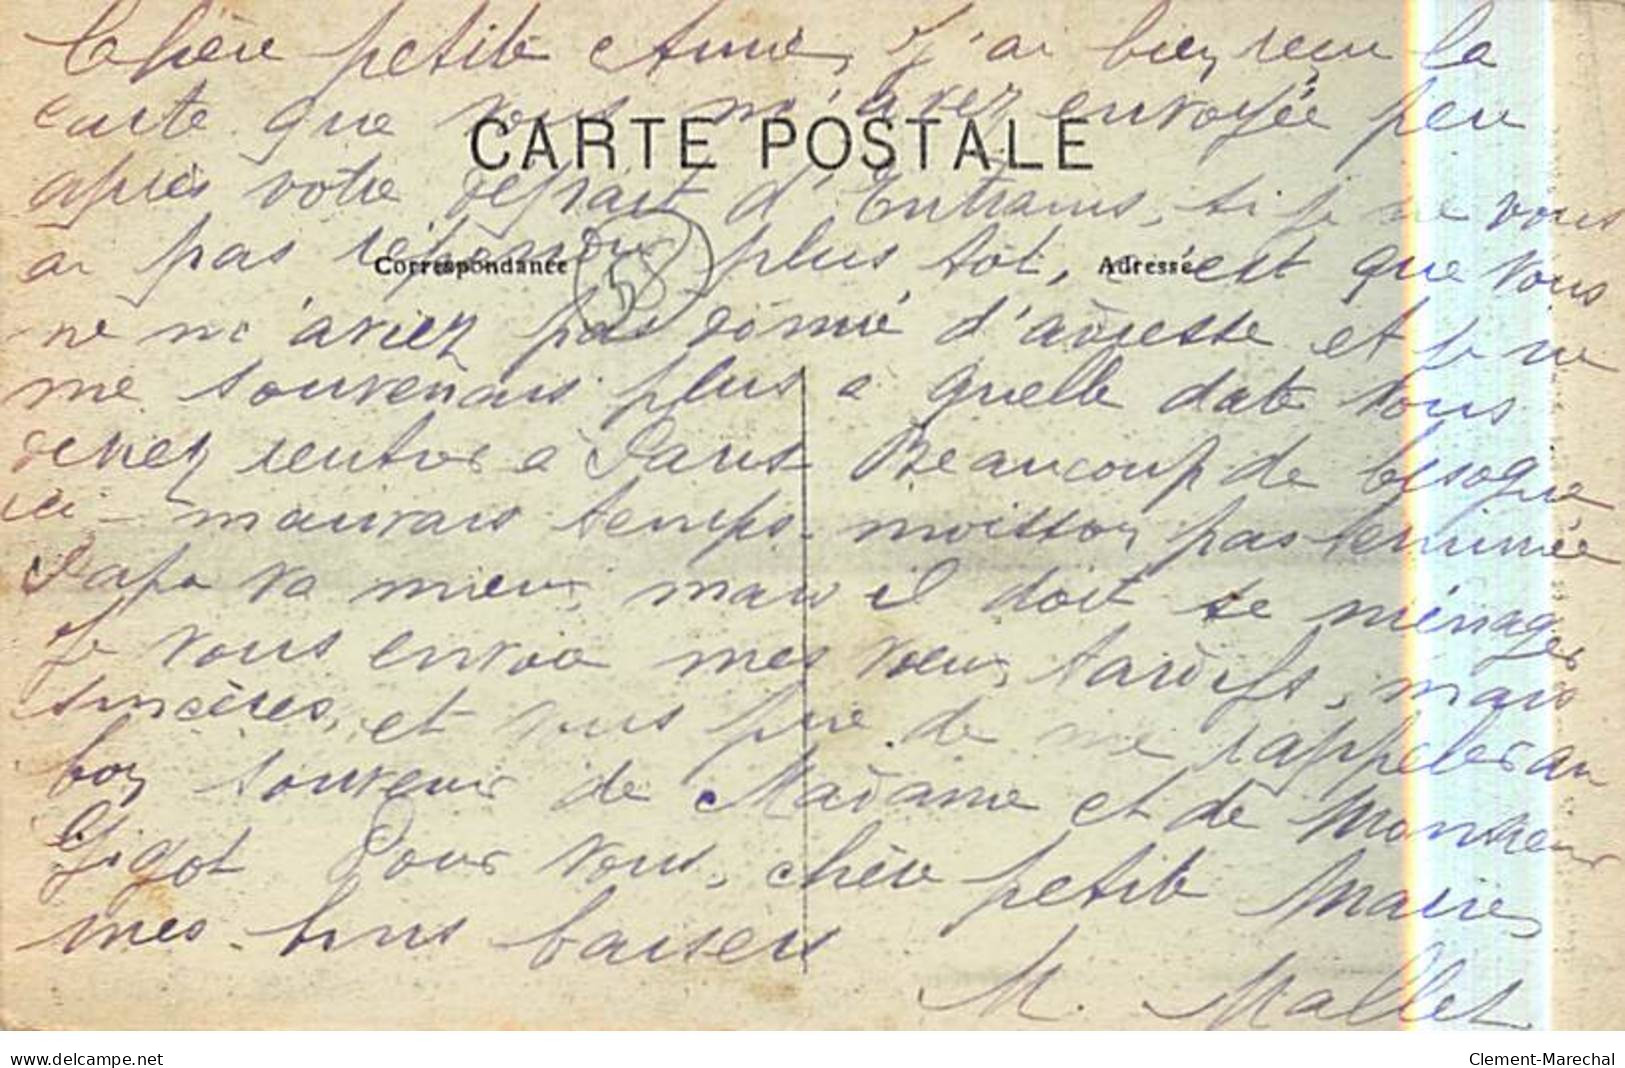 Chère petite Amie, J'ai bien reçu la
carte que vous m'avez envoyée peu
CARTE POSTALE
après votre départ d'Entrains, si je ne vous
ai pas répondu plus tôt, c'est que vous
Correspondance
Adresse
58
ne m'aviez pas donné d'adresse et je ne
me souvenais plus a quelle date vous
deviez rentrer a Paris Beaucoup de besogne
ici - mauvais temps - moisson pas terminée
Papa va mieux, mais il doit se ménager
Je vous envoie mes vœux tardifs, mais
sincères, et vous prie de me rappeler au
bon souvenir de Madame et de Monsieur
Gigot Pour vous, chère petite Marie,
mes bons baisers
M. Mallet
www.delcampe.net
Clement-Marechal